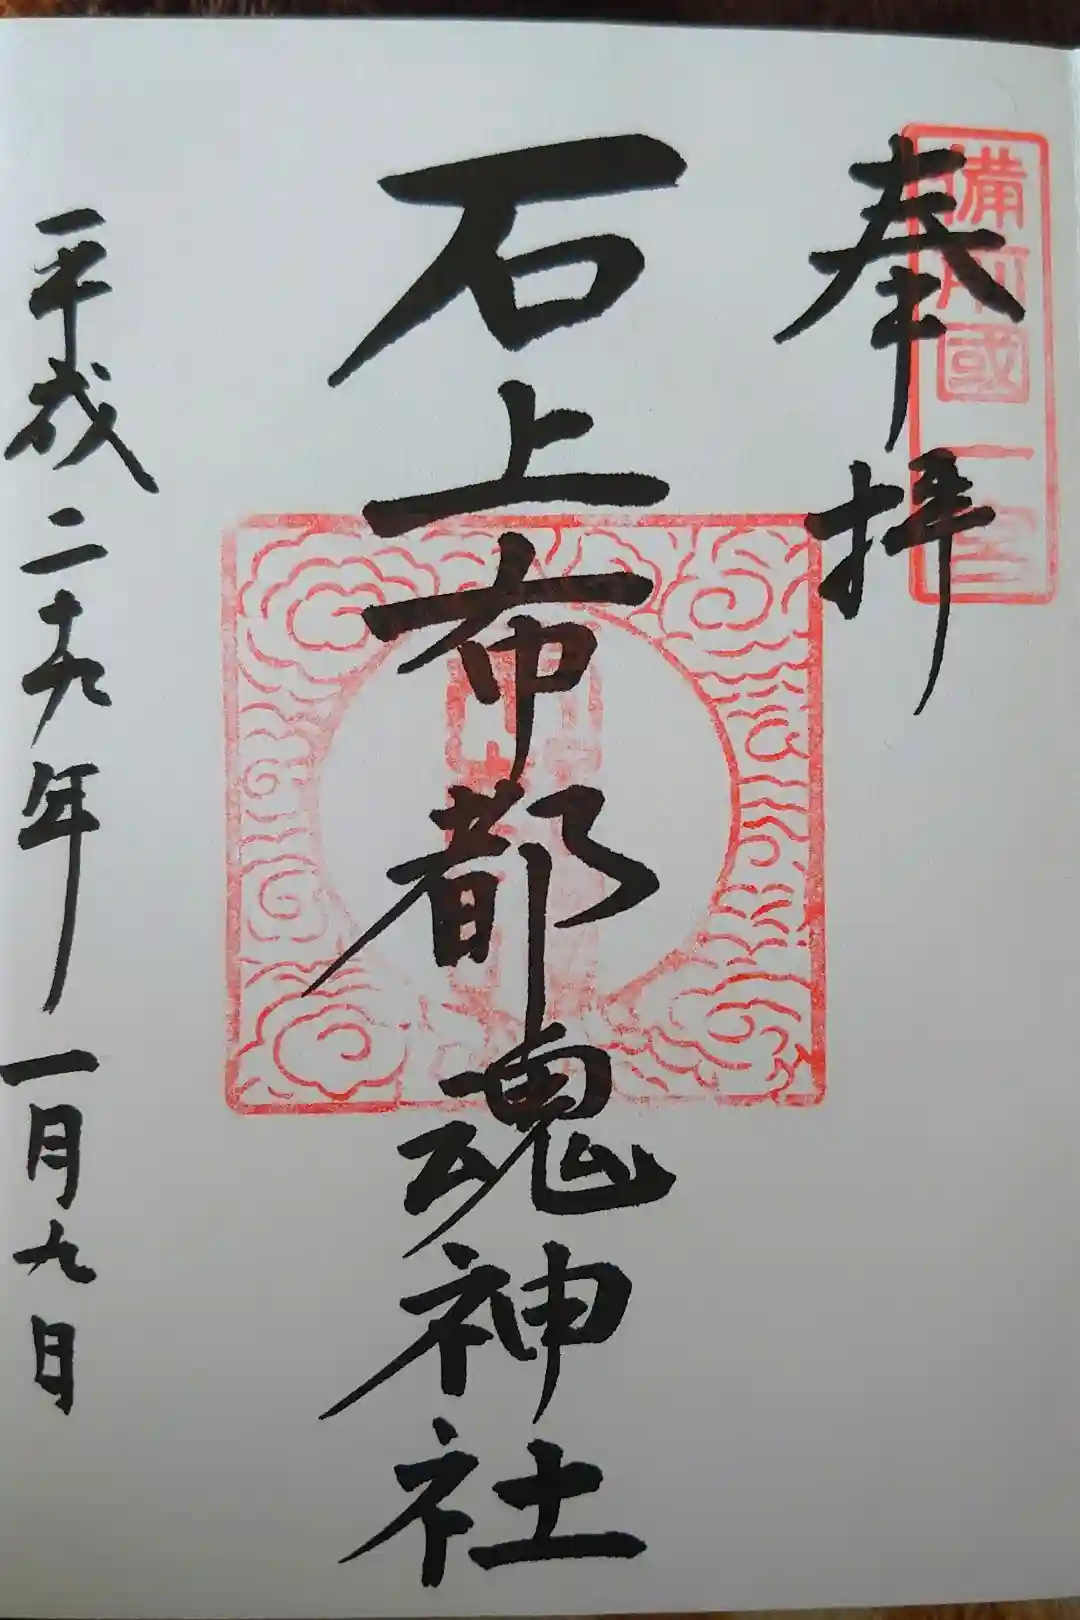 備前國一宮
奉拝
石上布都魂神社
平成二十九年一月九日